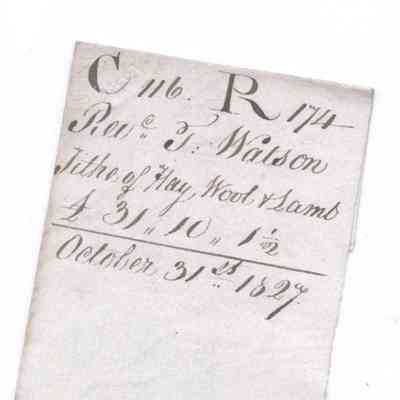 C 116. R 174
Revd. T: Watson
Tithe of Hay, Wool & Lamb
£ 31 " 10 " 1 1/2
October 31st 1827